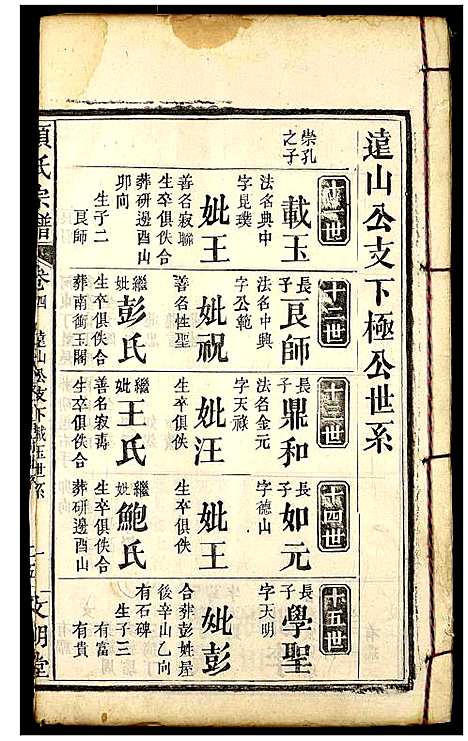 遠山公支下極公世系
十一世
崇孔之子
載玉
法名典中
字昆璞
妣王
善名寂聯
生卒俱佚合
葬研邊酉山
卯向
生子二
艮師
十二世
長子
艮師
法名中興
字公範
妣祝
善名性聖
繼妣
彭氏
生卒俱佚合
葬南衝王閣
十三世
長子
鼎和
法名金元
字天祿
妣汪
生卒俱佚
繼妣
王氏
善名寂壽
生卒俱佚合
十四世
長子
如元
字德山
妣王
生卒俱佚
繼妣
鮑氏
生卒俱佚合
葬研邊酉山
十五世
長子
學聖
字天明
妣彭
合葬彭姓屋
後辛山乙向
有石碑
生子三
有富
有貴
項氏宗譜
卷四
遠山公支下載玉世系
文明堂